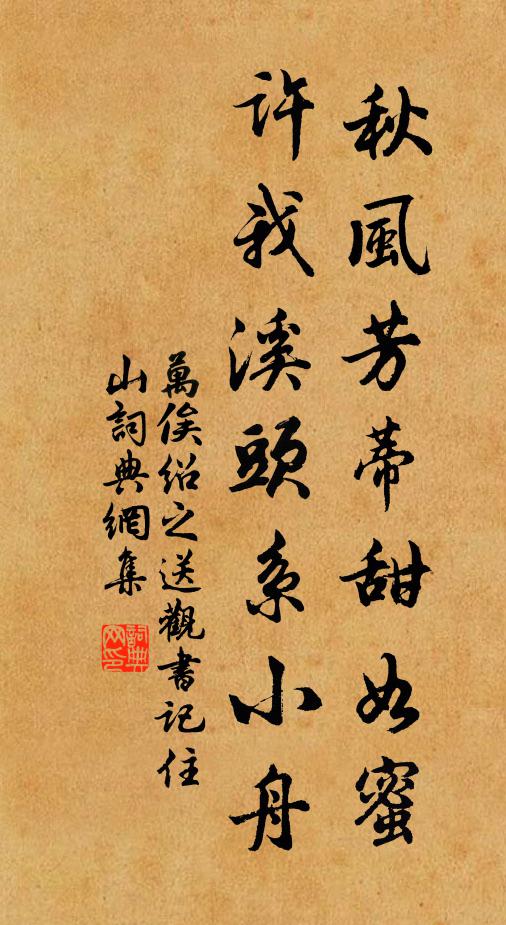 秋風芳蒂甜如蜜
許我溪頭系小舟
萬俟紹之送觀書記住
山詞典網集
詞典网印